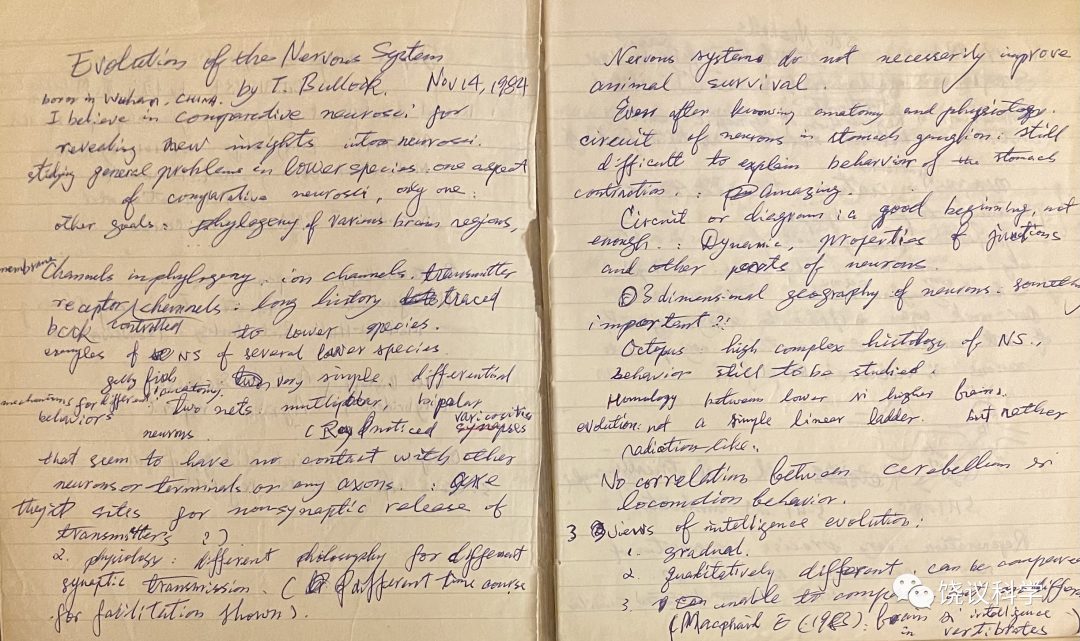 Evolution of the Nervous System
by T. Bullock. Nov 14, 1984
born in Wuhan, CHINA.
I believe in comparative neurosci for
revealing new insights into neurosci.
studying general problems in lower species: one aspect
of comparative neurosci, only one.
other goals: phylogeny of various brain regions,
membrane
Channels in phylogeny. ion channels. transmitter
receptor/channels: long history traced
back controlled to lower species.
examples of NS of several lower species.
jelly fish very simple. differential
mechanisms for different anatomy:
behaviors two nets: multipolar, bipolar
neurons. (noticed varicosities synapses
that seem to have no contact with other
neurons or terminals or any axons. : are
they sites for nonsynaptic release of
transmitters?)
2. physiology: different philosophy for different
synaptic transmission. (different time course
for facilitation shown).
Nervous systems do not necessarily improve
animal survival.
Even after knowing anatomy and physiology.
circuit of neurons in stomach ganglion: still
difficult to explain behavior of the stomach
contraction. : Amazing.
Circuit or diagram: a good beginning, not
enough. : Dynamic, properties of junctions
and other parts of neurons.
3 dimensional geography of neurons.
important?!
Octopus high complex histology of NS.,
behavior still to be studied.
Homology between lower & higher brains.
evolution: not a simple linear ladder. but rather
radiation-like.
No correlation between cerebellum &
locomotion behavior.
3 views of intelligence evolution:
1. gradual.
2. qualitatively different, can be compared
3. unable to
(Macphail E (1983): brain & intelligence
in vertibrates)
饶议科学